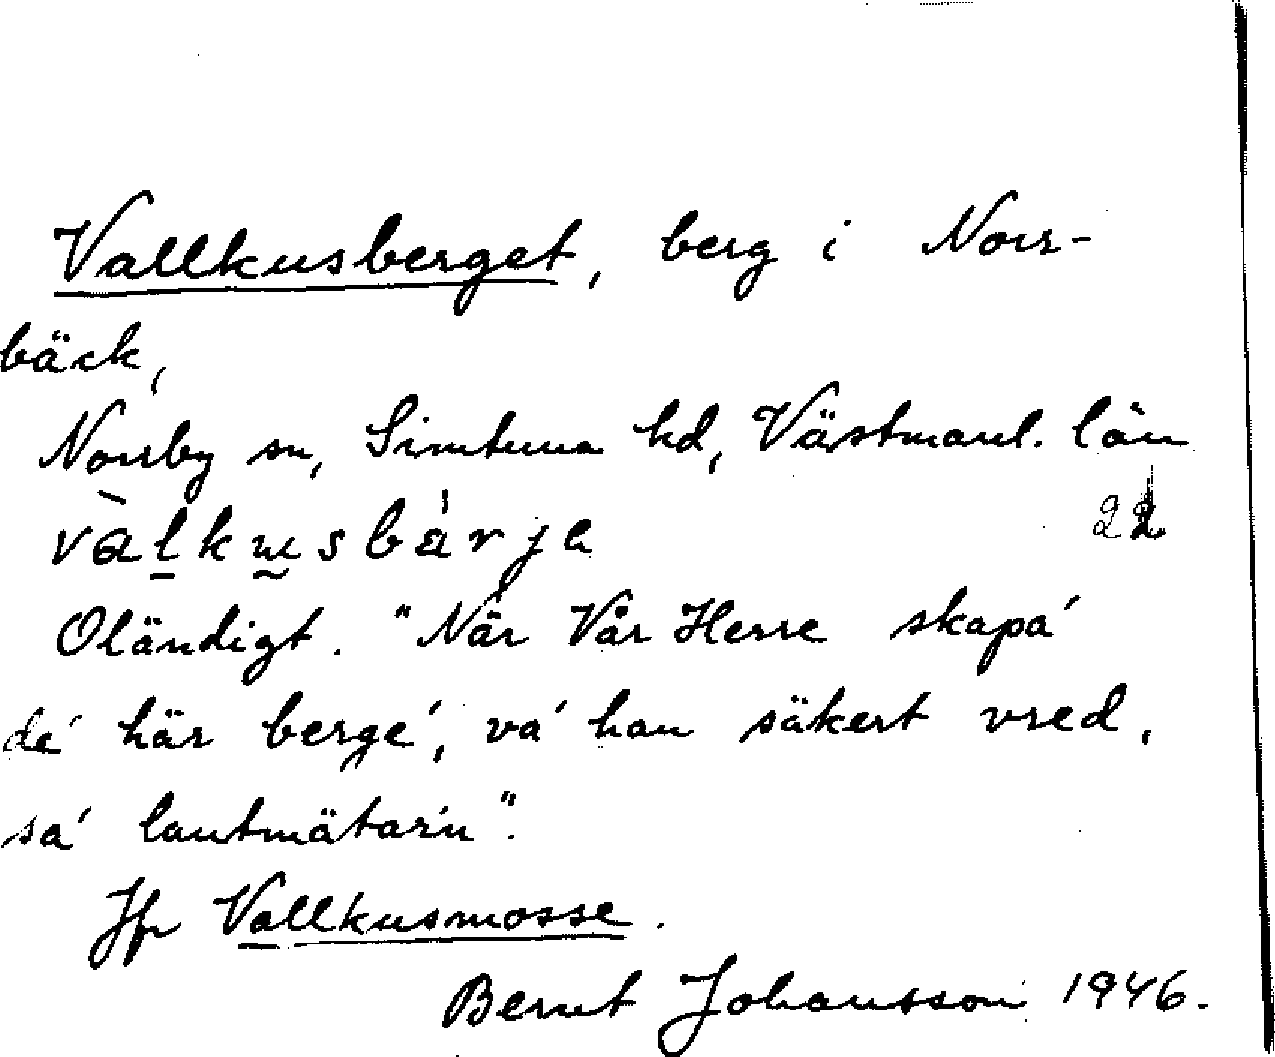 Vallkusberget, berg i Norr-
bäck,
Norrby sn, Simtuna hd, Västmanl. län
vàlkusbárja 22
Oländigt. "När Vår Herre skapa'
de' här berge', va' han säkert vred,
sa' lantmätar'n".
Jfr Vallkusmosse.
Bernt Johansson 1946.